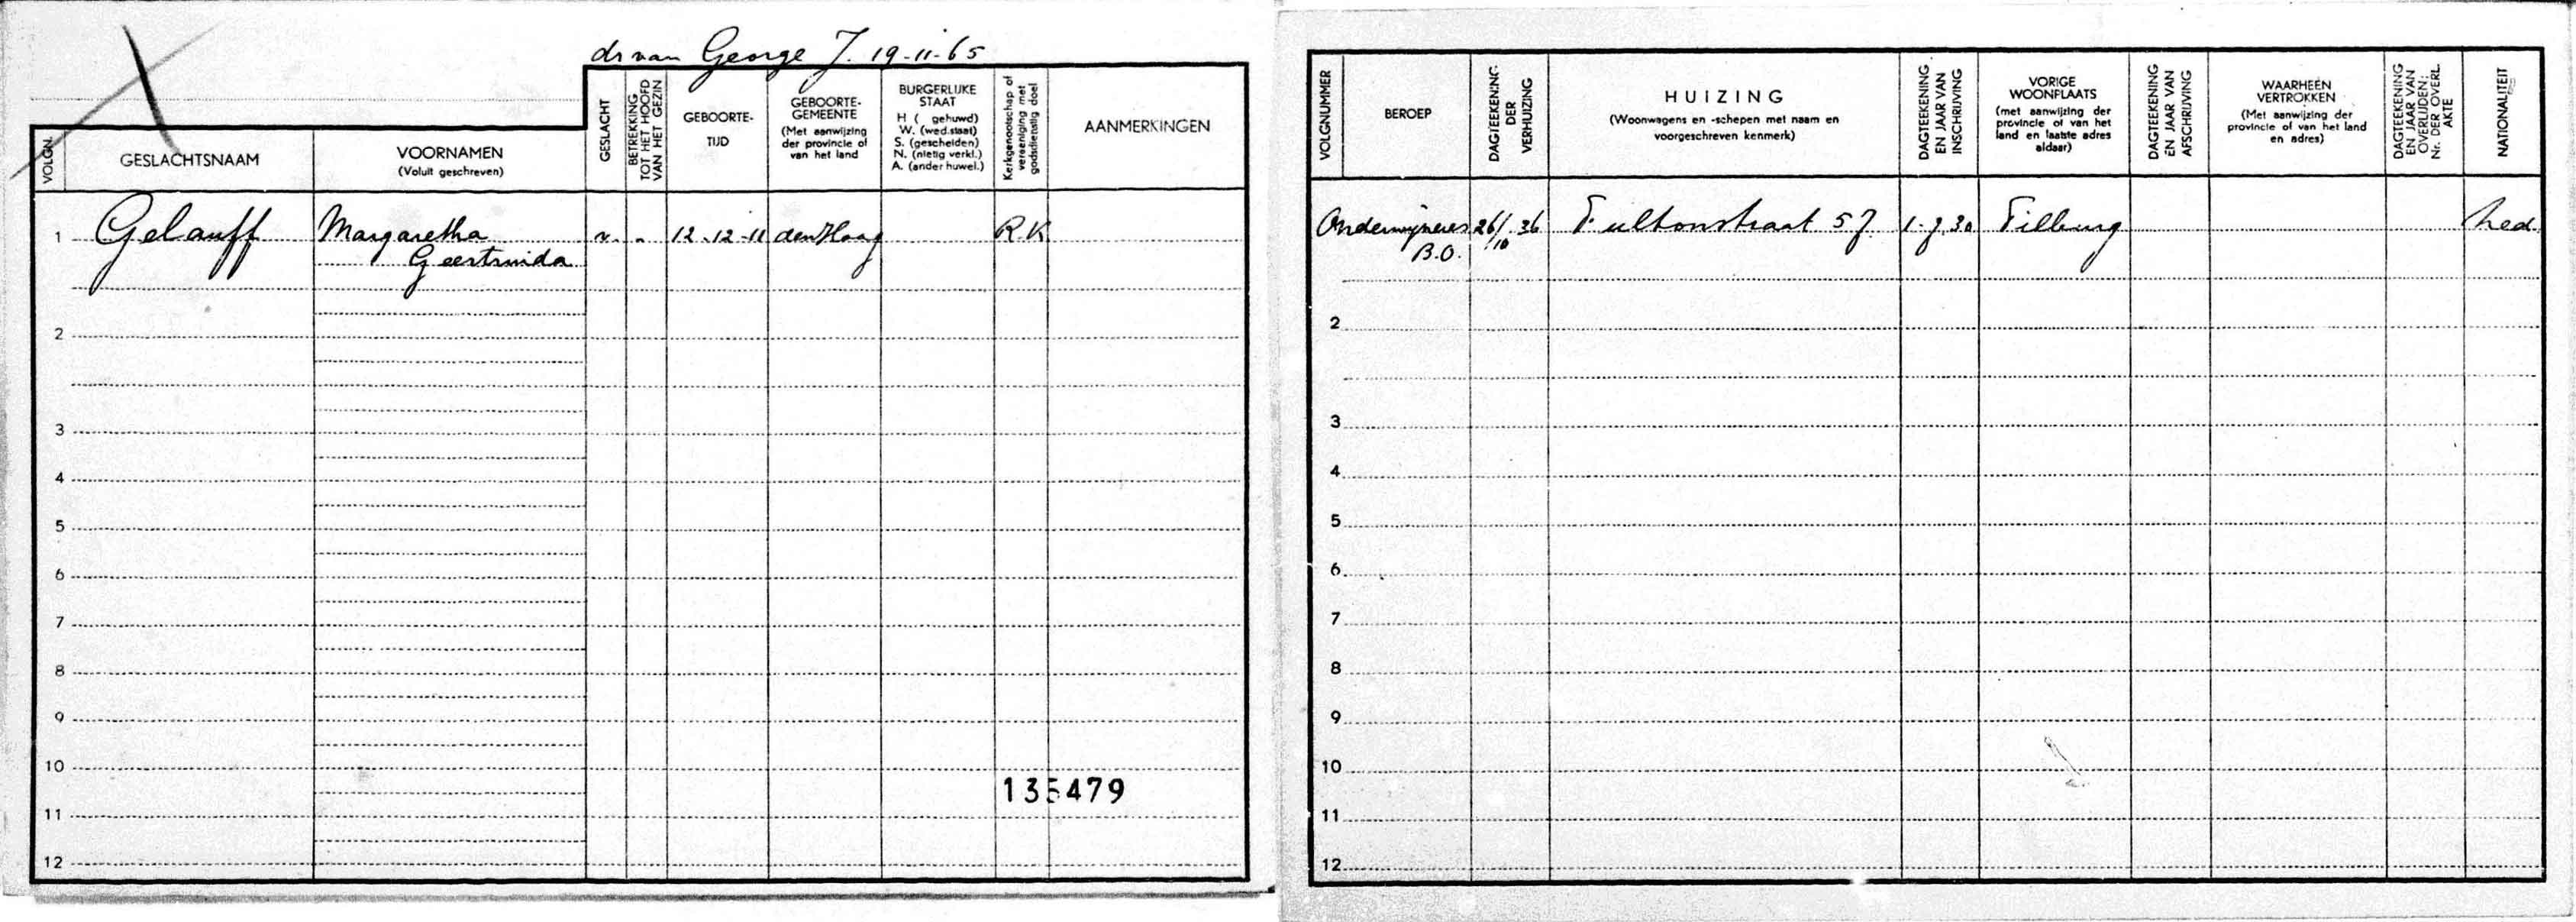 dr van George J. 19-11-65
VOLGN.
GESLACHTSNAAM
VOORNAMEN
(Voluit geschreven)
GESLACHT
BETREKKING
TOT HET HOOFD
VAN HET GEZIN
GEBOORTE-
TIJD
GEBOORTE-
GEMEENTE
(Met aanwijzing
der provincie of
van het land
BURGERLIJKE
STAAT
H ( gehuwd)
W. (wed.staat)
S. (gescheiden)
N. (nietig verkl.)
A. (ander huwel.)
Kerkgenootschap of
vereeniging met
godsdienstig doel
AANMERKINGEN
1 Gelauff Margaretha v. 12-12-11 den Haag RK
Geertruida
2
3
4
5
6
7
8
9
10
135479
11
12
VOLGNUMMER
BEROEP
DAGTEEKENING
DER
VERHUIZING
HUIZING
(Woonwagens en -schepen met naam en
voorgeschreven kenmerk)
DAGTEEKENING
EN JAAR VAN
INSCHRIJVING
VORIGE
WOONPLAATS
(met aanwijzing der
provincie of van het
land en laatste adres
aldaar)
DAGTEEKENING
EN JAAR VAN
AFSCHRIJVING
WAARHEEN
VERTROKKEN
(Met aanwijzing der
provincie of van het land
en adres)
DAGTEEKENING
EN JAAR VAN
OVERLIJDEN;
Nr. DER OVERL.
AKTE
NATIONALITEIT
Onderwijzeres 26/10 36 Fultonstraat 57. 1-7.30 Tilburg Ned.
B.O.
2
3
4
5
6
7
8
9
10
11
12